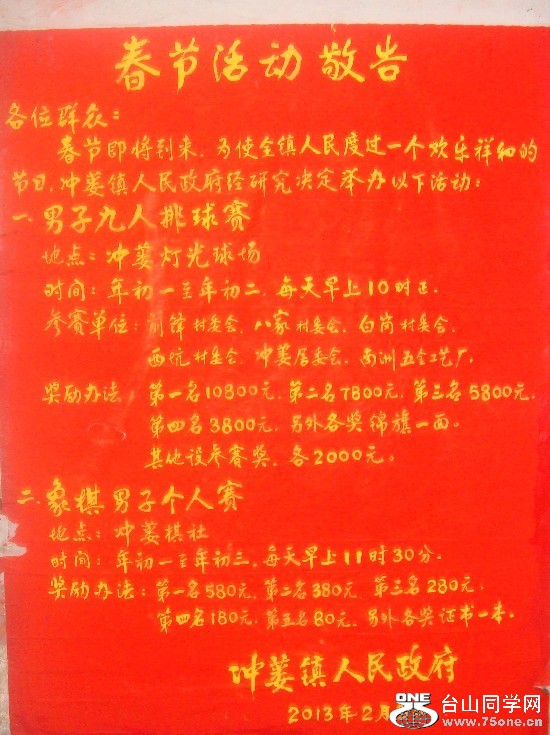 春节活动敬告
各位群众：
春节即将到来，为使全镇人民度过一个欢乐祥和的
节日，冲蒌镇人民政府经研究决定举办以下活动：
一、男子九人排球赛
地点：冲蒌灯光球场
时间：年初一至年初二，每天早上10时正。
参赛单位：前锋村委会、八家村委会、白岗村委会、
西坑村委会、冲蒌居委会、南洲五金工艺厂。
奖励办法：第一名10800元，第二名7800元，第三名5800元，
第四名3800元，另外各奖锦旗一面。
其他设参赛奖，各2000元。
二、象棋男子个人赛
地点：冲蒌棋社
时间：年初一至年初三，每天早上11时30分。
奖励办法：第一名580元，第二名380元，第三名280元，
第四名180元，第五名80元，另外各奖证书一本。
冲蒌镇人民政府
2013年2月
ONE
台山同学网
www.75one.cn